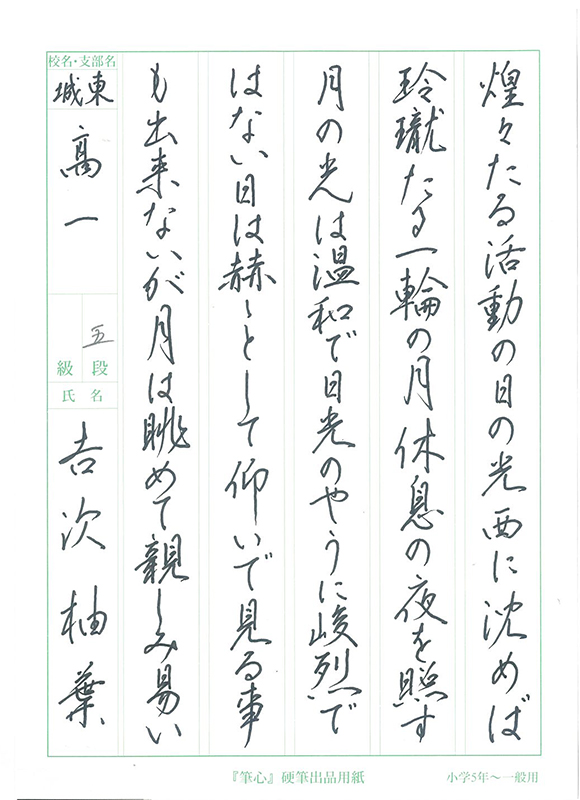 煌々たる活動の日の光西に沈めば
玲瓏たる一輪の月休息の夜を照す
月の光は温和で日光のやうに峻烈で
はない日は赫〻として仰いで見る事
も出来ないが月は眺めて親しみ易い
校名・支部名
城東
高一
五
段
級
氏名
吉次柚葉
『筆心』硬筆出品用紙
小学5年～一般用